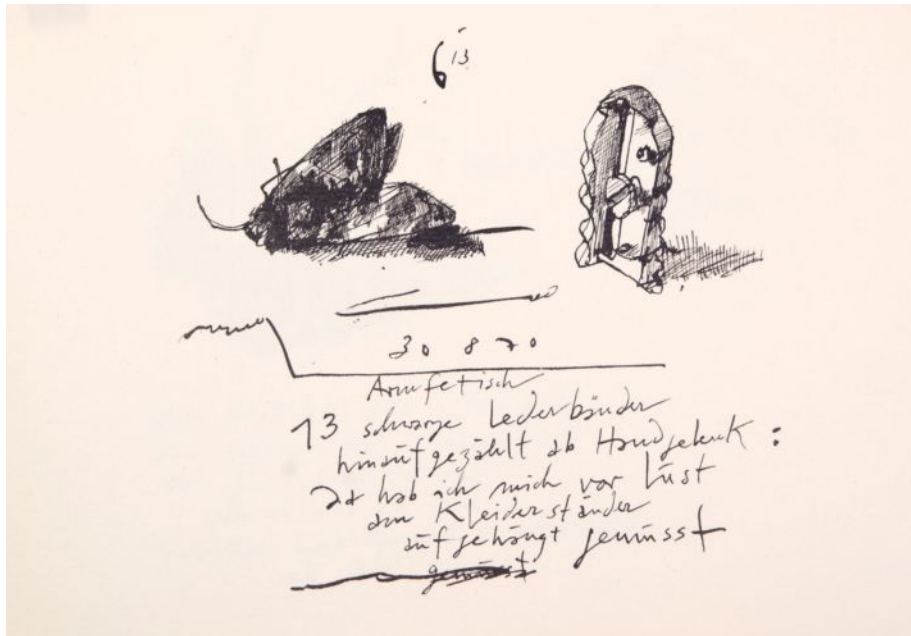 6 13
30 8 70
Armfetisch
13 schwarze Lederbänder
hinaufgezählt ab Handgelenk :
da hab ich mich vor Lust
am Kleiderständer
aufgehängt gemusst
gemusst